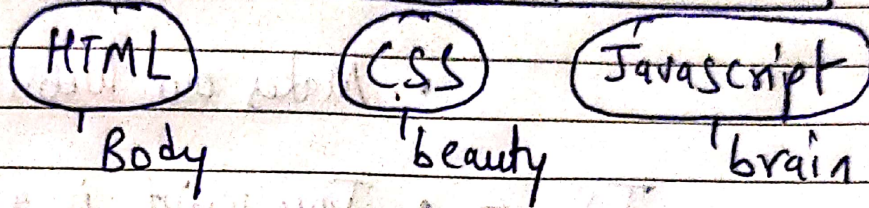 HTML CSS Javascript
Body beauty brain